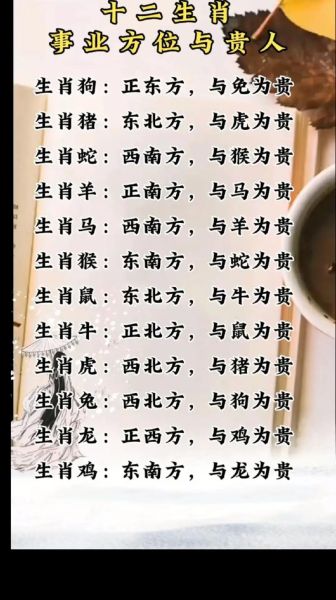 十二生肖
事业方位与贵人
生肖狗：正东方，与兔为贵
生肖猪：东北方，与虎为贵
生肖蛇：西南方，与猴为贵
生肖羊：正南方，与马为贵
生肖马：西南方，与羊为贵
生肖猴：东南方，与蛇为贵
生肖鼠：东北方，与牛为贵
生肖牛：正北方，与鼠为贵
生肖虎：西北方，与猪为贵
生肖兔：西北方，与狗为贵
生肖龙：正西方，与鸡为贵
生肖鸡：东南方，与龙为贵